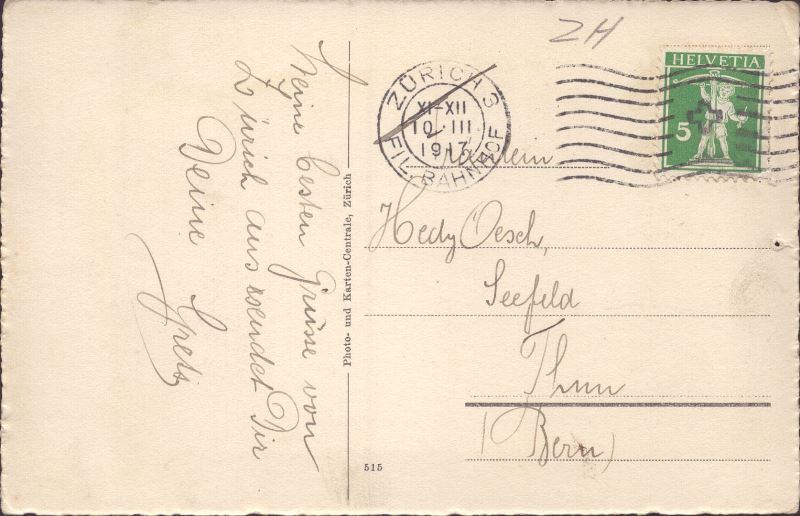 Meine besten Grüsse von
Zürich aus sendet Dir
Deine
Photo- und Karten-Centrale, Zürich
515
ZH
ZÜRICH 3
XI-XII
10. III.
1917
FIL. BAHNHOF
HELVETIA
5
Fräulein
Hedy Oesch,
Seefeld
Thun
(Bern)